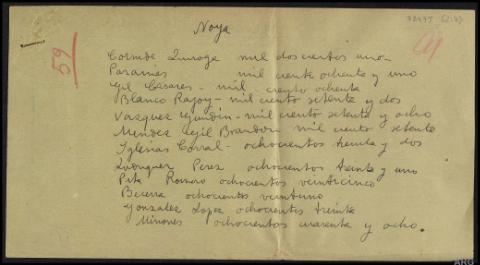 Noya
59
Cornide Quiroga mil doscientos uno-
Paramés mil ciento ochenta y uno
Gil Casares - mil ciento ochenta
Blanco Rajoy - mil ciento setenta y dos
Vazquez Gundin - mil ciento setenta y ocho
Mendez Gil Brandon mil ciento setenta
Iglesias Corral - ochocientos treinta y dos
Rodriguez Perez ochocientos treinta y uno
Pita Romero ochocientos veinticinco
Becerra ochocientos veintiuno
Gonzalez Lopez ochocientos treinta
Miñones ochocientos cuarenta y ocho.